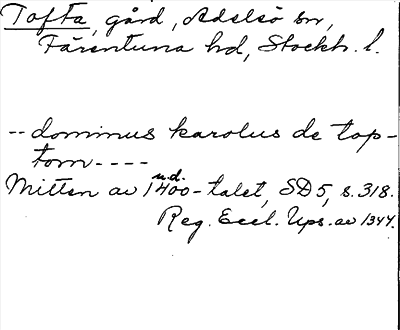 Tofta, gård, Adelsö sn,
Färentuna hd, Stockh. l.
-- dominus karolus de top-
tom ----
u.d.
Mitten av 1400-talet, SD 5, s. 318.
Reg. Eccl. Ups. av 1344.